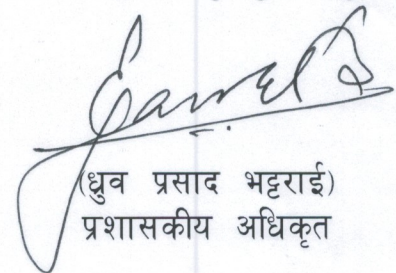 (ध्रुव प्रसाद भट्टराई)
प्रशासकीय अधिकृत